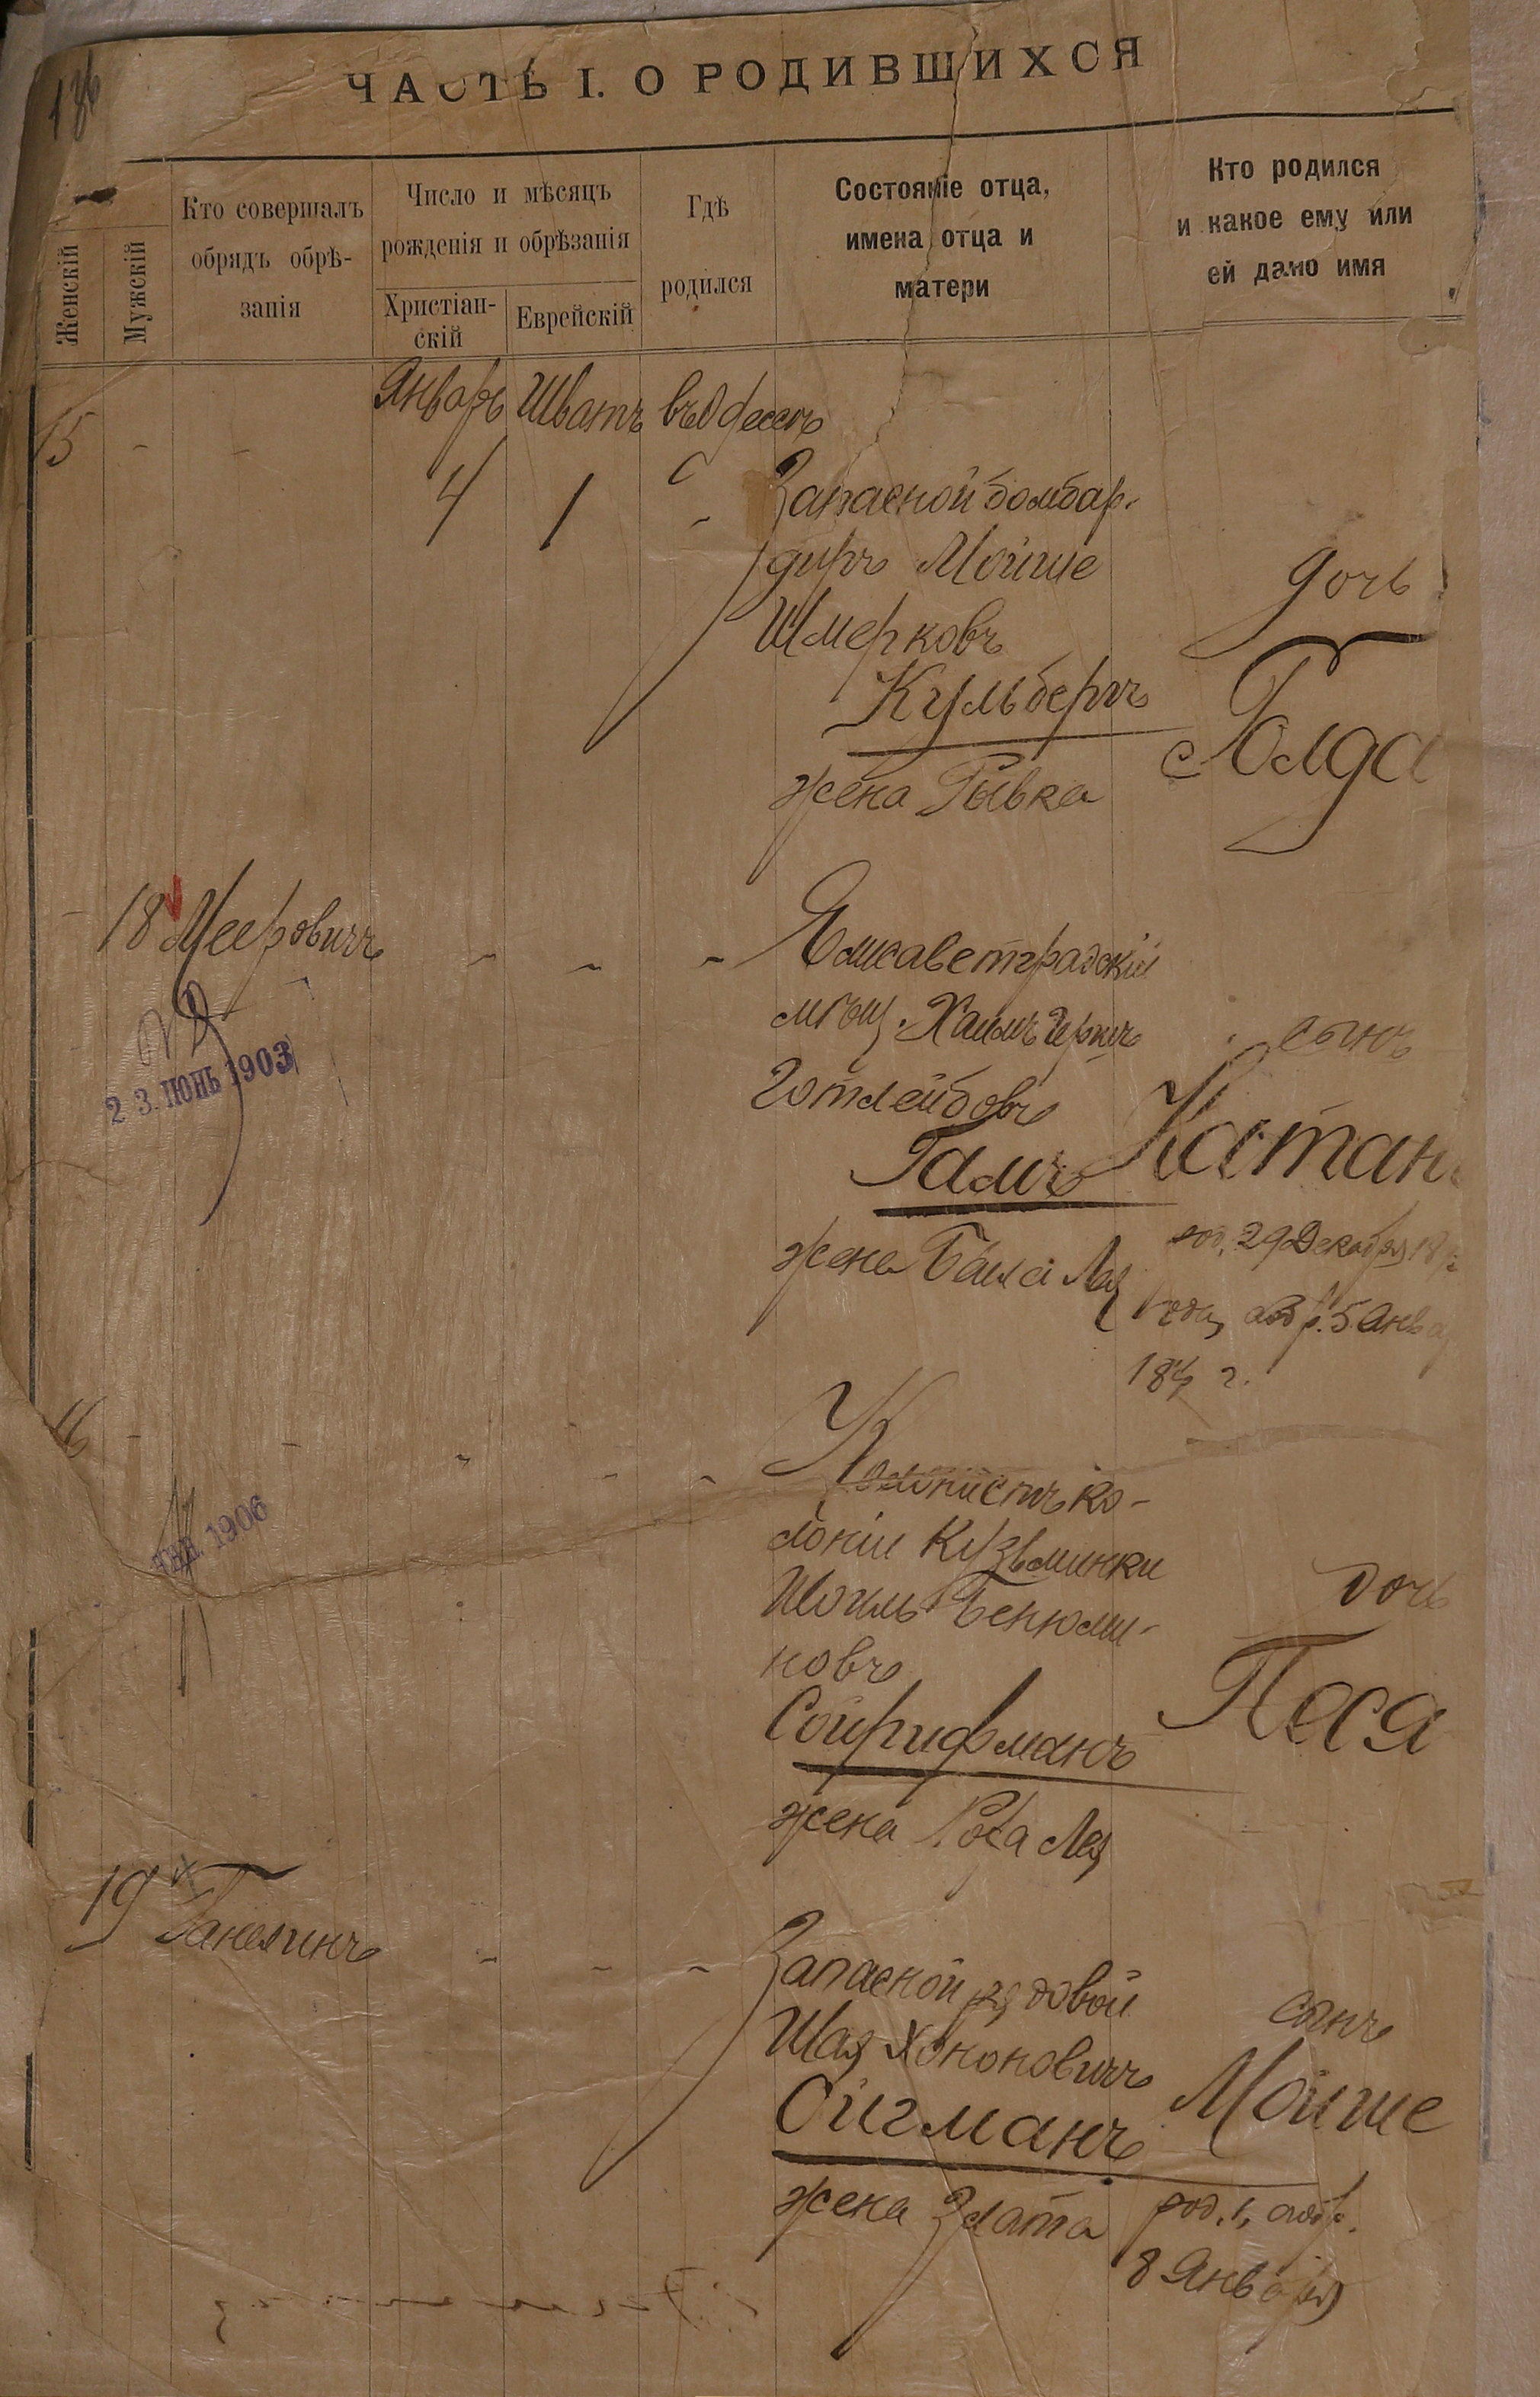 186
ЧАСТЬ I. О РОДИВШИХСЯ
Женскій
Мужскій
Кто совершалъ
обрядъ обрѣ-
занія
Число и мѣсяцъ
рожденія и обрѣзанія
Христіан-
скій
Еврейскій
Гдѣ
родился
Состояніе отца,
имена отца и
матери
Кто родился
и какое ему или
ей дано имя
Январь Шватъ въ Одессѣ
15 - - 4 1 - Запасной бомбар-
диръ Мойше
Шмерковъ
Кульбергъ
жена Рывка
дочь
Голда
18 Мееровичъ - - - Елисаветградскій
мѣщ. Хаимъ Гершъ
Готлейбовъ
Гамъ
жена Бейла Лея
23. ИЮНЬ 1903
сынъ
Натанъ
род. 29 Декабря
года, обр. 5 Янва
г.
16 - - - - - Колонистъ ко-
лоніи Кузьминки
Шогиль Бенюми-
новъ
Сойрифманъ
жена Роса Лея
ЯНВ. 1906
дочь
Песя
19 Ганелинъ - - - Запасной рядовой
Шая Хононовичъ
Ойгманъ
жена Злата
сынъ
Мойше
род. 1, обр.
8 Января